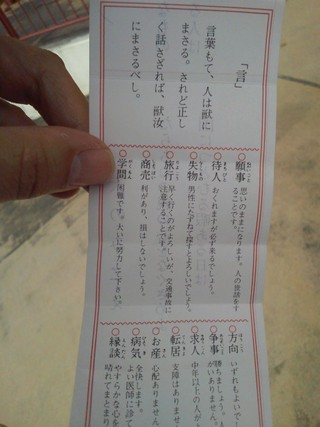 「言」
言葉もて、人は獣に
まさる。されど正し
く話さざれば、獣汝
にまさるべし。
○願事 思いのままになります。人の世話をす
ることです。
○待人 おくれますが必ず来るでしょう。
○失物 男性にたずねて探すとよろしいでしょう。
○旅行 早く行くのがよろしいが、交通事故に
注意することです。
○商売 利があり、損はしないでしょう。
○学問 困難です。大いに努力して下さい。
○方向 いずれもよいでし
○争事 勝ちましょう。
がいありません
○求人 中年以上の人が
○転居 支障はありませ
○お産 心配ありませ
○病気 全快します。
よい医師に診て
○縁談 やすらかな心を
晴れてまとまり